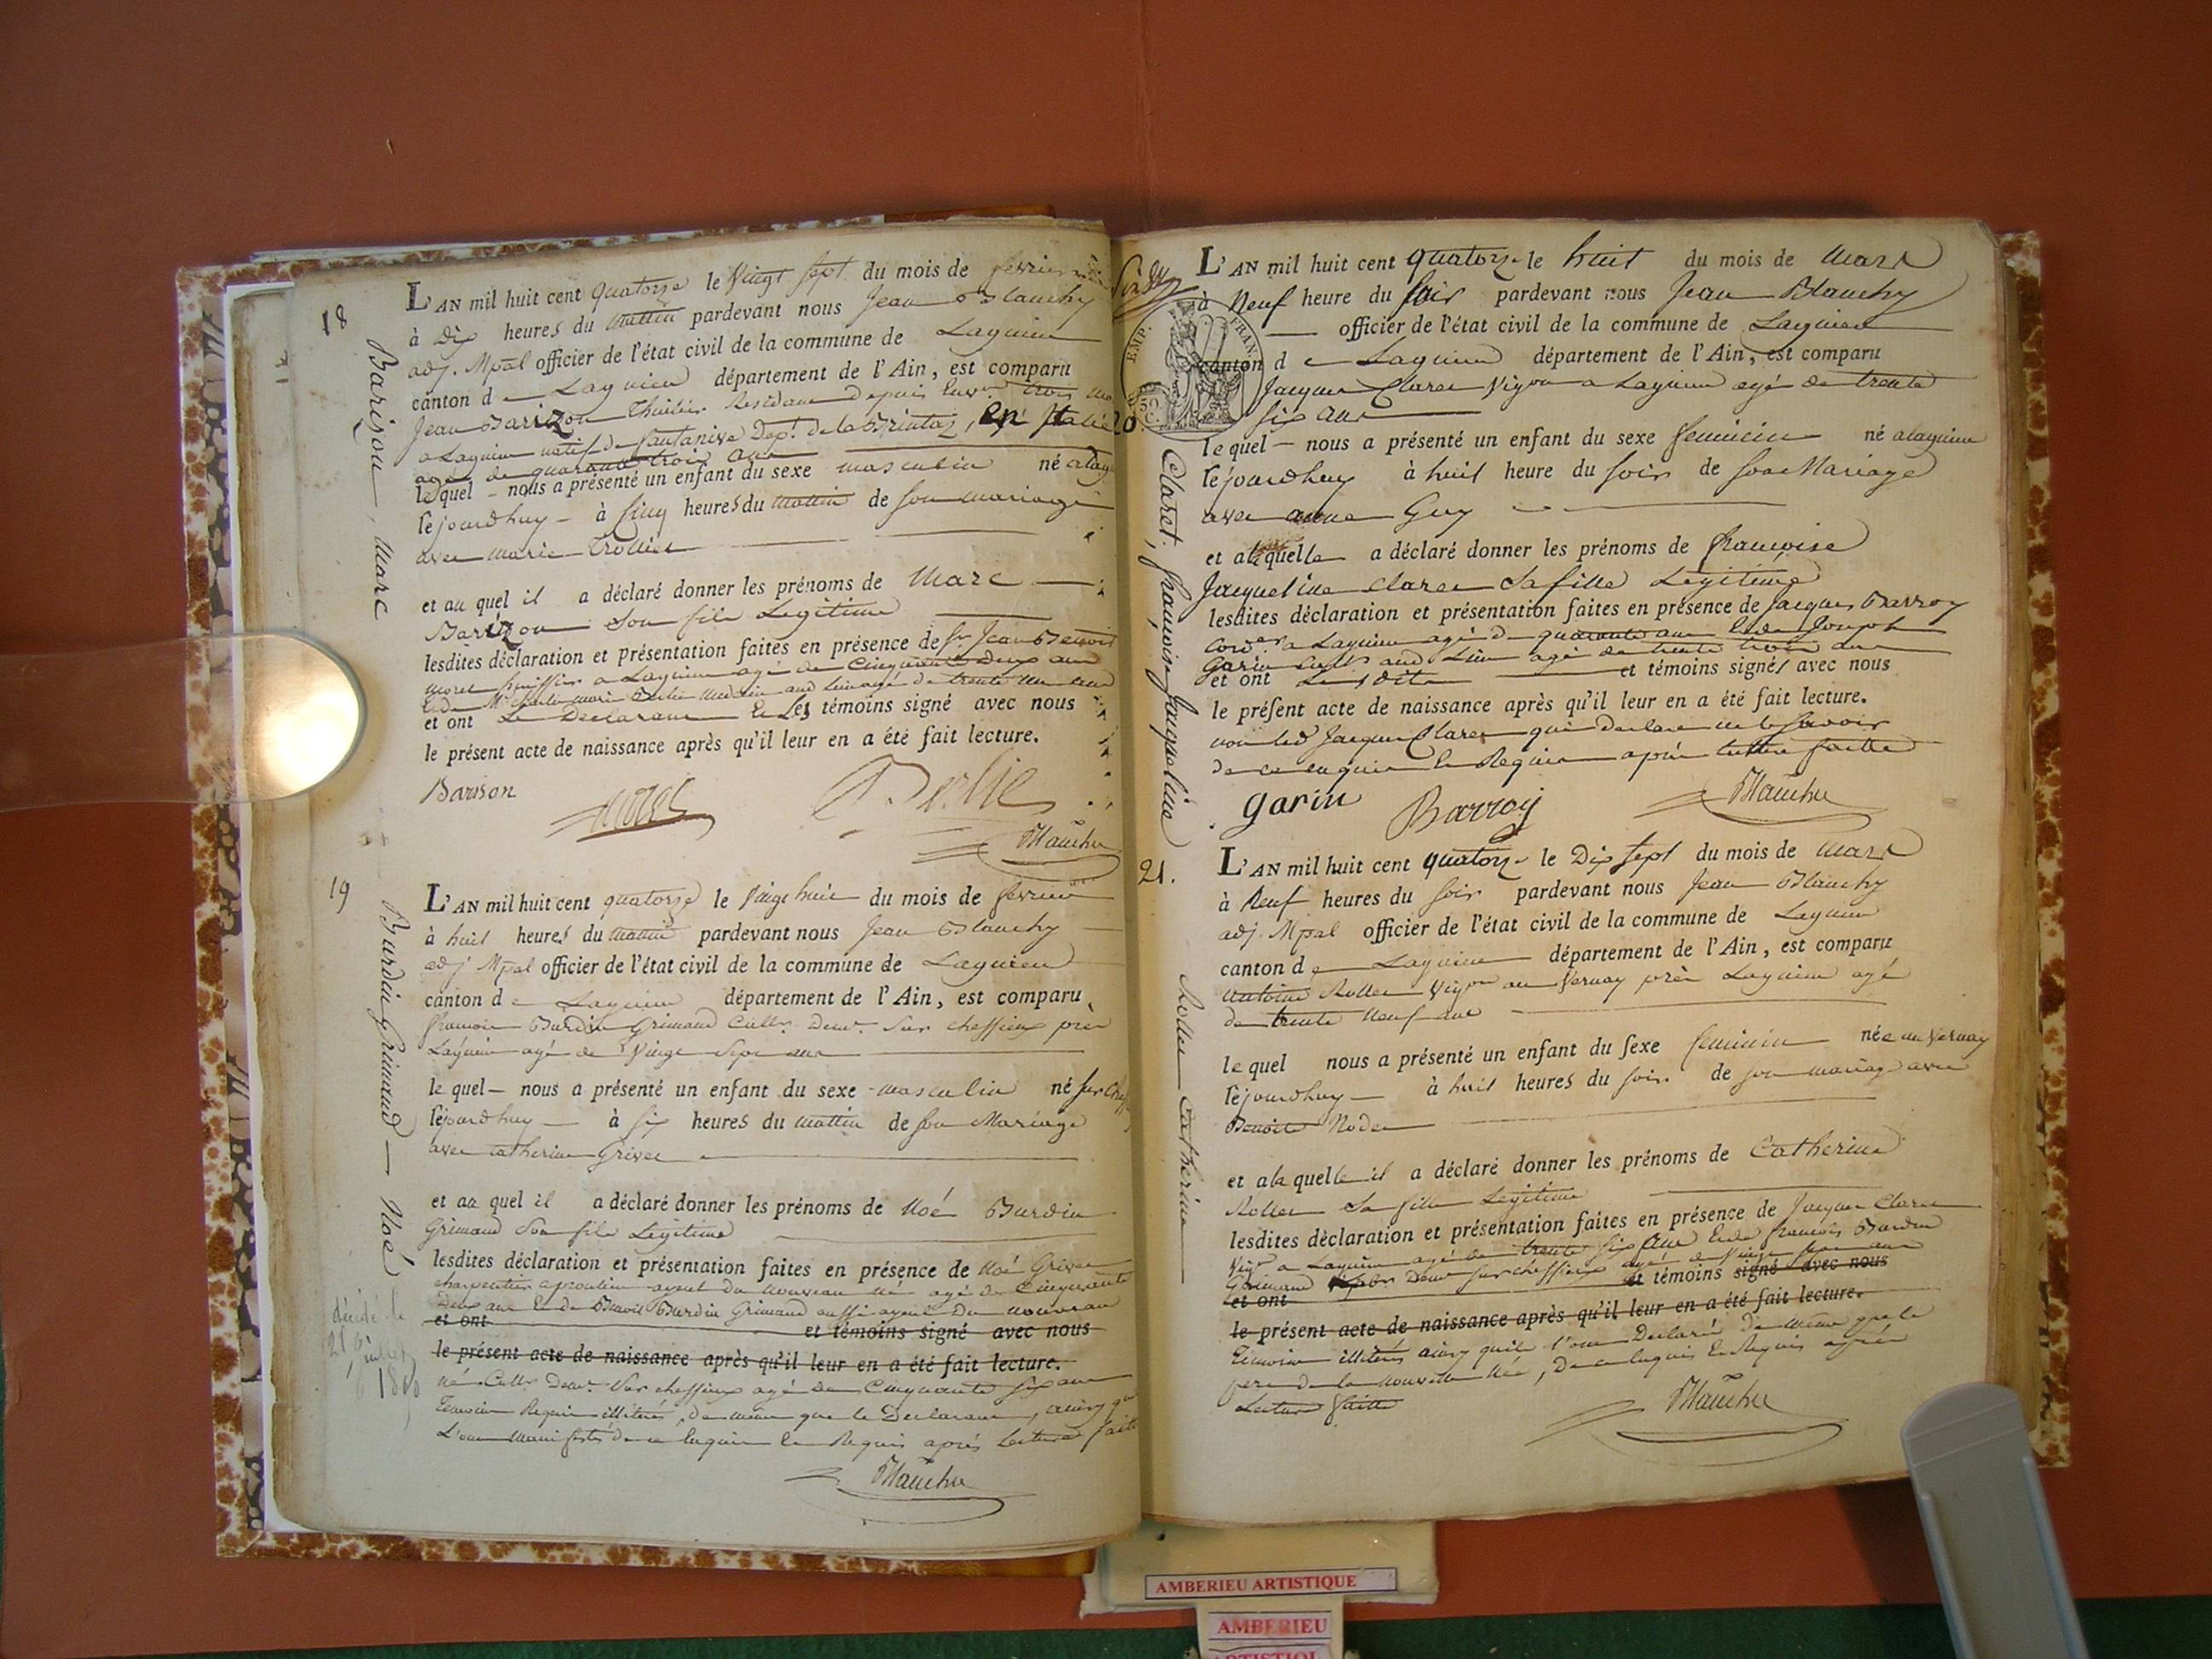 18
Barison, Marc
L'AN mil huit cent quatorze le Vingt sept du mois de fevrier
à Dix heures du mattin pardevant nous Jean Blanchy
adj. Mpal officier de l'état civil de la commune de Lagnieu
canton de Lagnieu département de l'Ain, est comparu
Jean Barizon Residant depuis trois
a Lagnieu natif de Dept. de la Brinta, en Italie
agé de quarante trois ans
lequel nous a présenté un enfant du sexe masculin né a lag
cejourdhuy à Cinq heures du mattin de son mariage
avec marie Trollier
et au quel il a déclaré donner les prénoms de Marc
Barizon son fils Legitime
lesdites déclaration et présentation faites en présence de Sr. Jean Benoit
morel huissier a Lagnieu agé de Cinquante Deux ans
agé de trente un ans
et ont Le Declarant & Les témoins signé avec nous
le présent acte de naissance après qu'il leur en a été fait lecture.
Barison morel Berlie
Blanchy
19
Burdin Grimaud Noé
L'AN mil huit cent quatorze le Vingt huit du mois de fevrier
à huit heures du mattin pardevant nous Jean Blanchy
adj Mpal officier de l'état civil de la commune de Lagnieu
canton de Lagnieu département de l'Ain, est comparu
francois Burdin Grimaud Cultr. demt. Sur cheffieux près
Lagnieu agé de Vingt Sept ans
le quel nous a présenté un enfant du sexe masculin né sur
cejourdhuy à six heures du mattin de son Mariage
avec catherine Grivet
et au quel il a déclaré donner les prénoms de Noé Burdin
Grimaud Son fils Legitime
lesdites déclaration et présentation faites en présence de Noé Grivet
charpentier ayeul du nouveau né agé de Cinquante
deux ans & de Benoit Burdin Grimaud aussi ayeul Du nouveau
et ont et témoins signé avec nous
le présent acte de naissance après qu'il leur en a été fait lecture.
né Cultr. demt. Sur cheffieux agé de Cinquante six ans
Temoins Requis illiterés, de même que le Declarant, ainsy
L'ont manifesté de ce enquis & Requis après lecture faite
Blanchy
décédé le
20
Claret, françoise Jacqueline
EMP. FRAN.
50 C.
L'AN mil huit cent quatorze le huit du mois de Mars
à Neuf heure du soir pardevant nous Jean Blanchy
officier de l'état civil de la commune de Lagnieu
canton de Lagnieu département de l'Ain, est comparu
Jacques Claret Vigon a Lagnieu agé de trente
six ans
le quel nous a présenté un enfant du sexe feminin né a lagnieu
cejourdhuy à huit heure du soir de son Mariage
avec anne Guy
et alaquelle a déclaré donner les prénoms de francoise
Jacqueline claret Sa fille Legitime
lesdites déclaration et présentation faites en présence de Jacques Barroy
cordr. a Lagnieu agé de quarante ans & de Joseph
Garin Cultr. aud Lieu agé de trente trois ans
et ont Lesdits et témoins signés avec nous
le présent acte de naissance après qu'il leur en a été fait lecture.
non led Jacques Claret qui declare ne le Savoir
de ce enquis & Requis après lecture faitte
garin Barroy Blanchy
21.
Rollet Catherine
L'AN mil huit cent quatorze le Dix sept du mois de Mars
à Neuf heures du soir pardevant nous Jean Blanchy
adj. Mpal officier de l'état civil de la commune de Lagnieu
canton de Lagnieu département de l'Ain, est comparu
antoine Rollet Vigon au Vernay près Lagnieu agé
de trente neuf ans
le quel nous a présenté un enfant du sexe feminin née au Vernay
cejourdhuy à huit heures du soir de son mariage avec
Benoite Nodet
et ala quelle il a déclaré donner les prénoms de Catherine
Rollet Sa fille Legitime
lesdites déclaration et présentation faites en présence de Jacques Claret
Vigon a Lagnieu agé de trente six ans & de francois Burdin
Grimaud demt sur cheffieux agé de Vingt Sept ans
et ont et témoins signé avec nous
le présent acte de naissance après qu'il leur en a été fait lecture.
Temoins illiterés ainsy quils l'ont Declaré de même que le
pere de la nouvelle Née, De ce enquis & Requis après
Lecture faitte
Blanchy
AMBERIEU ARTISTIQUE
AMBERIEU
ARTISTIQUE